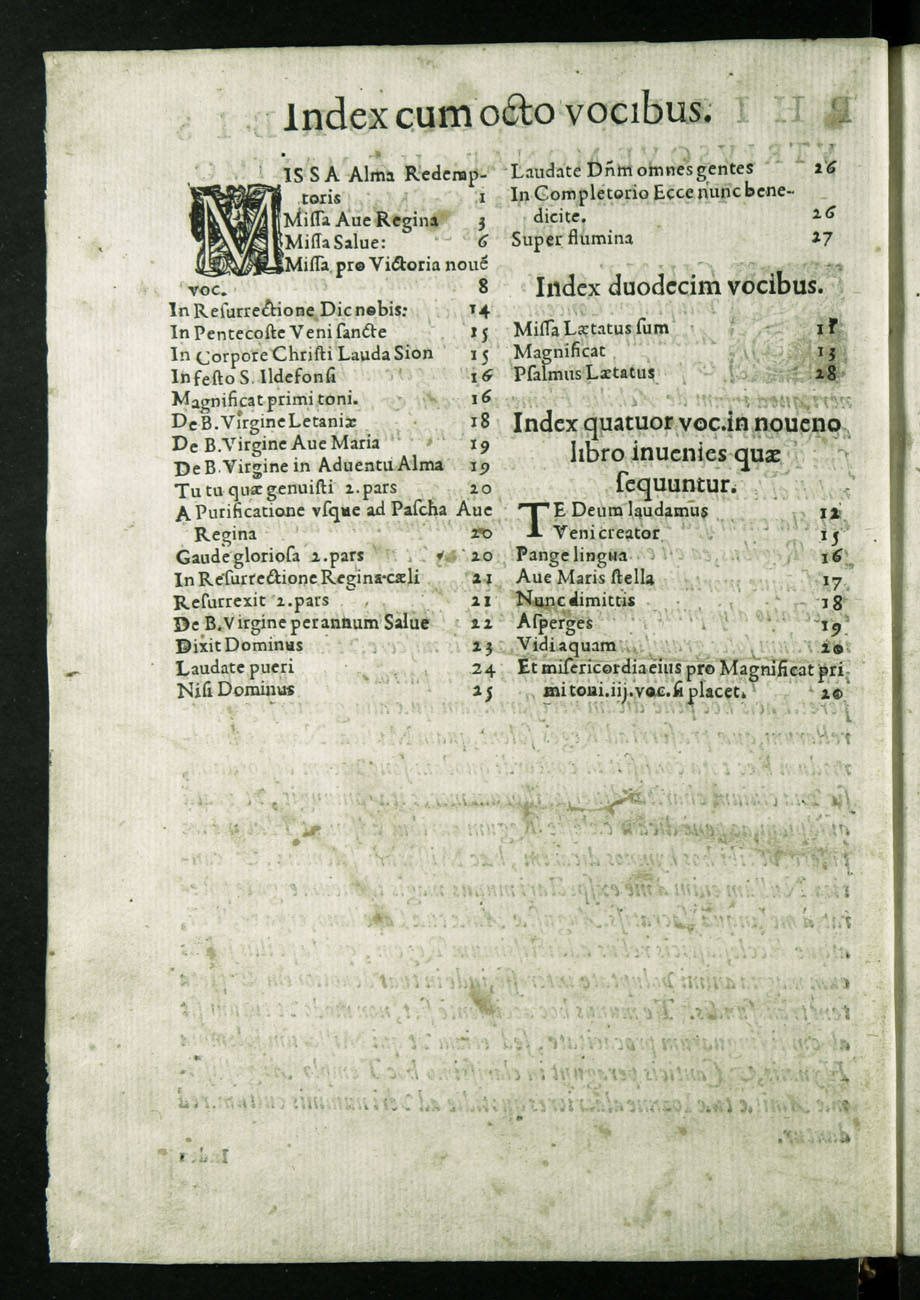 Index cum octo vocibus.
MISSA Alma Redemp-
toris 1
Missa Aue Regina 3
Missa Salue: 6
Missa pro Victoria nouē
voc. 8
In Resurrectione Dic nobis: 14
In Pentecoste Veni sancte 15
In Corpore Christi Lauda Sion 15
In festo S. Ildefonsi 16
Magnificat primi toni. 16
De B. Virgine Letaniæ 18
De B. Virgine Aue Maria 19
De B. Virgine in Aduentu Alma 19
Tu tu quæ genuisti 2. pars 20
A Purificatione vsque ad Pascha Aue
Regina 20
Gaude gloriosa 2. pars 20
In Resurrectione Regina cæli 21
Resurrexit 2. pars 21
De B. Virgine per annum Salue 22
Dixit Dominus 23
Laudate pueri 24
Nisi Dominus 25
Laudate Dn̄m omnes gentes 26
In Completorio Ecce nunc bene-
dicite. 26
Super flumina 27
Index duodecim vocibus.
Missa Lætatus sum 11
Magnificat 13
Psalmus Lætatus 28
Index quatuor voc. in noueno
libro inuenies quæ
sequuntur.
TE Deum laudamus 12
Veni creator 15
Pange lingua 16
Aue Maris stella 17
Nunc dimittis 18
Asperges 19
Vidi aquam 20
Et misericordia eius pro Magnificat pri
mi toni. iij. voc. si placet. 20